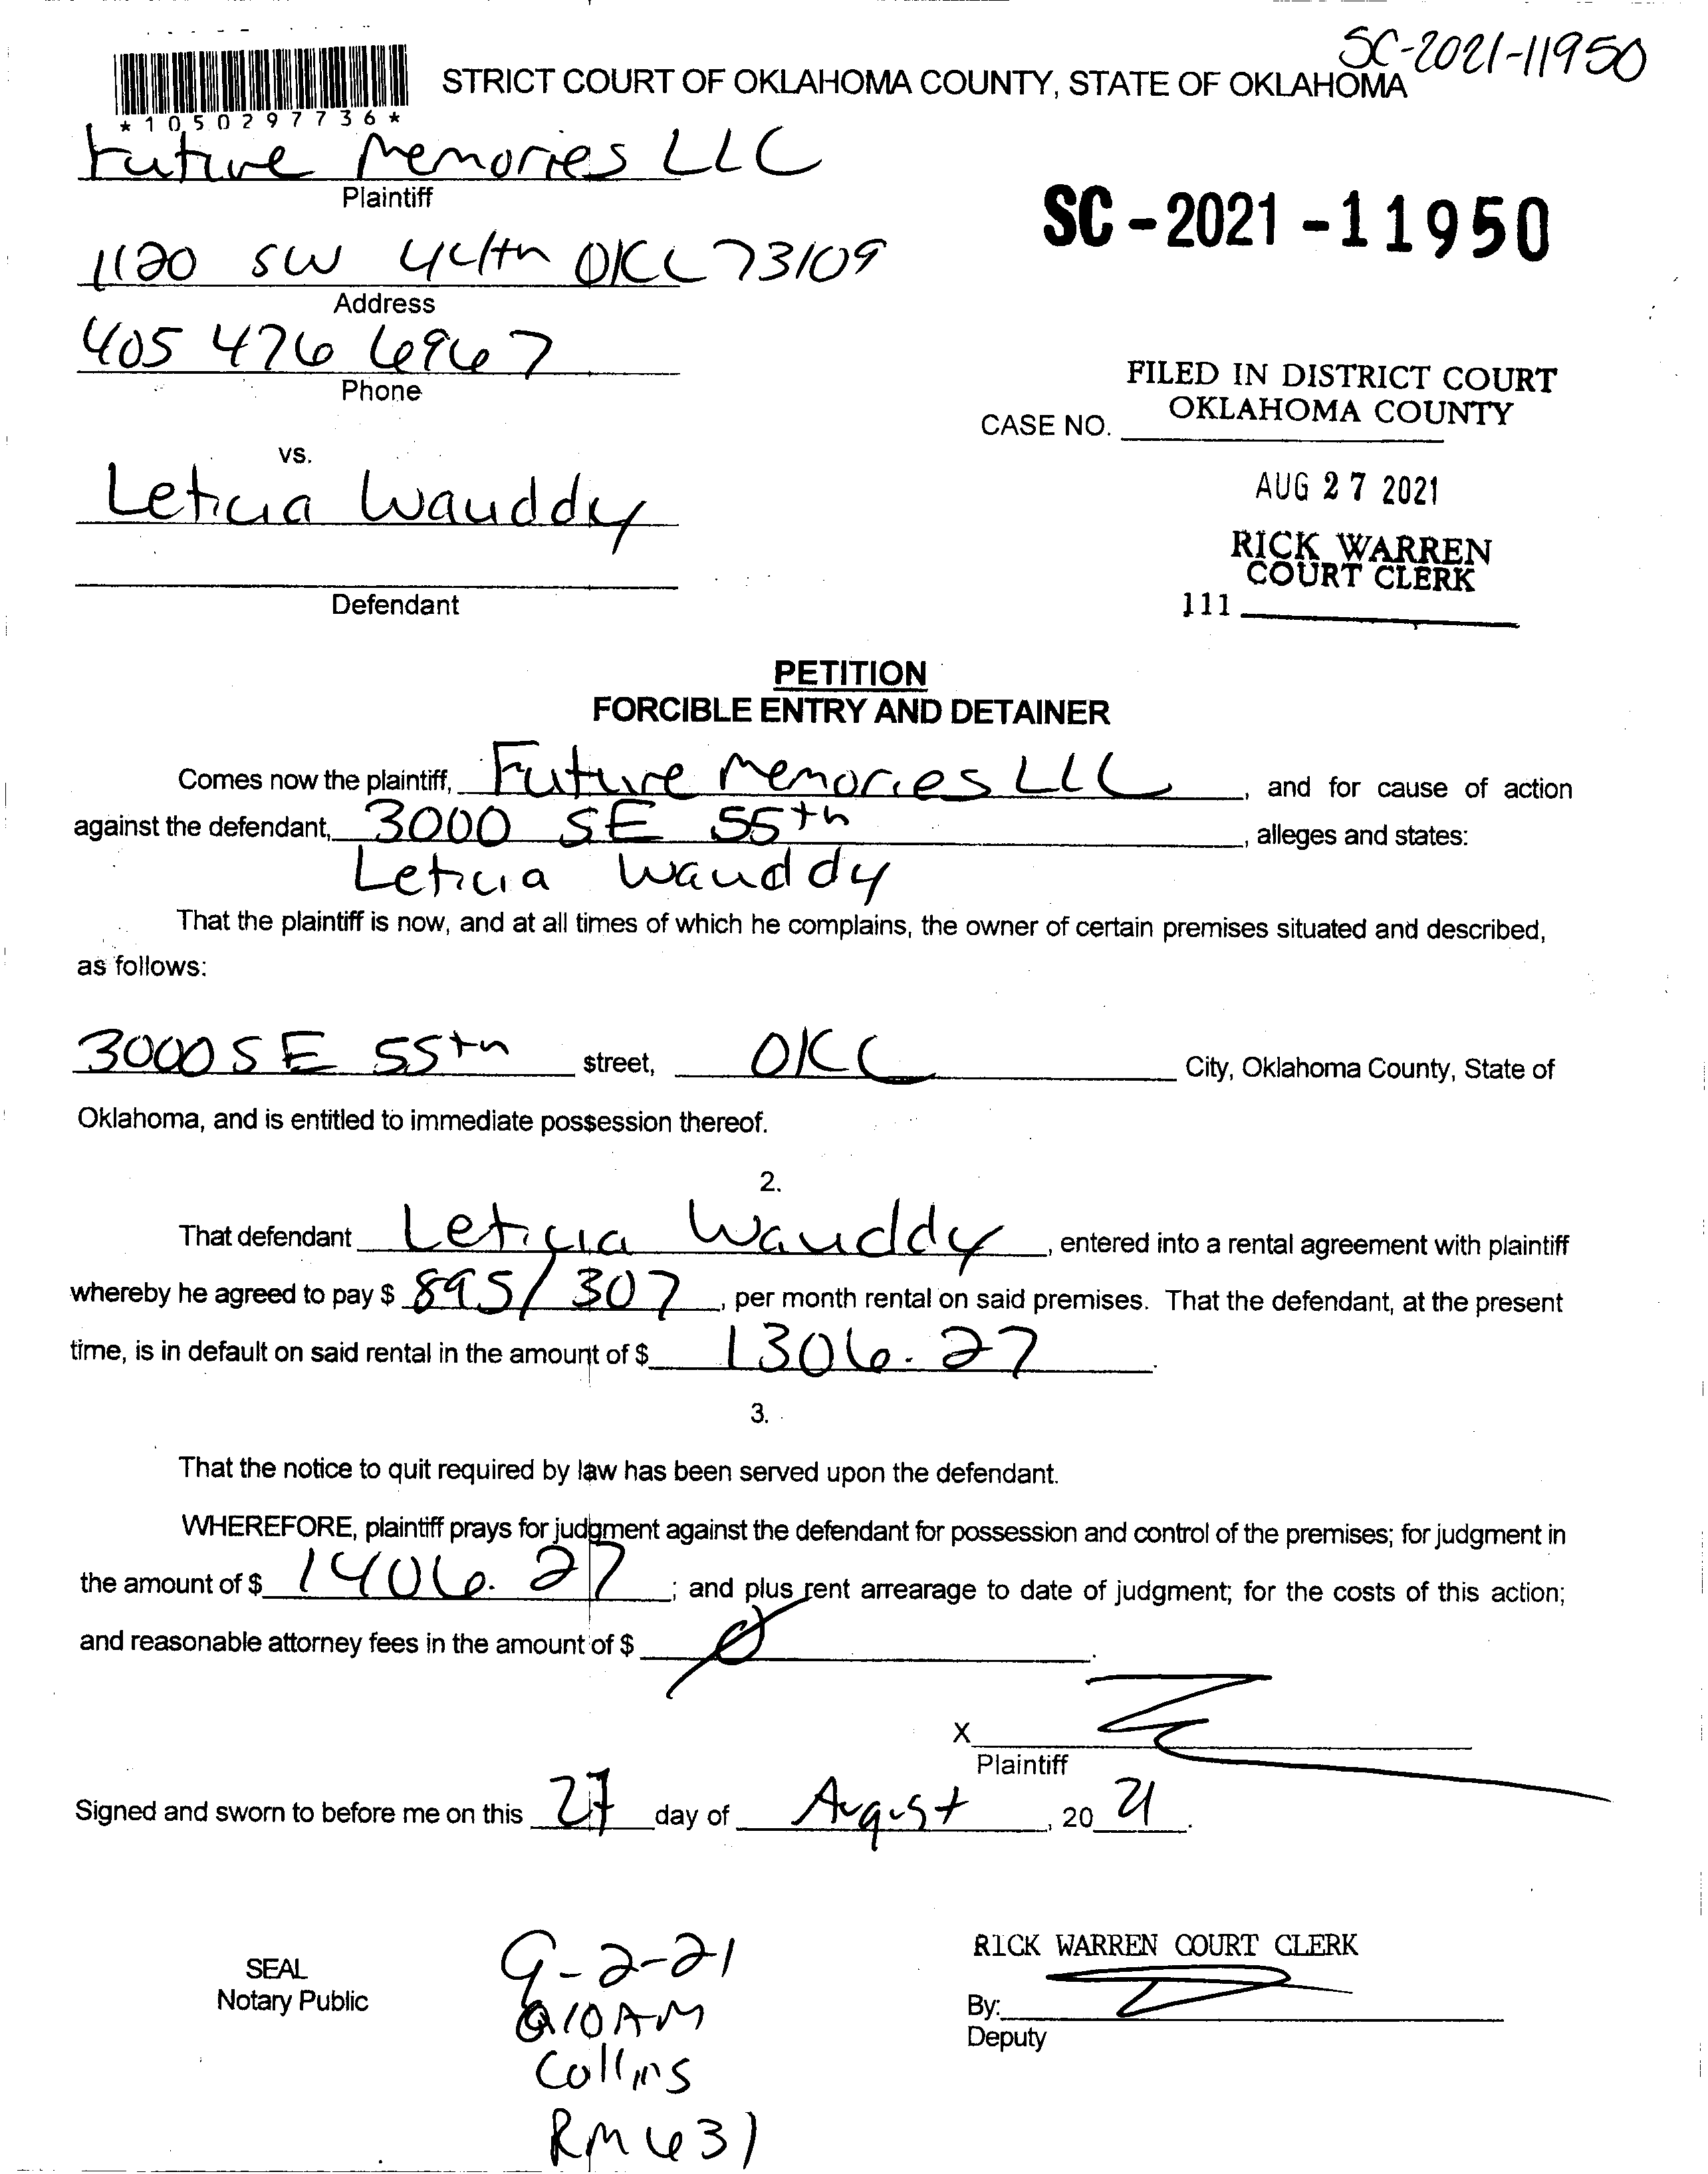 SC-2021-11950
STRICT COURT OF OKLAHOMA COUNTY, STATE OF OKLAHOMA
*1050297736*
Future Memories LLC
Plaintiff
SC-2021-11950
1120 SW 44th OKC 73109
Address
405 476 6967
Phone
FILED IN DISTRICT COURT
OKLAHOMA COUNTY
CASE NO.
vs.
Leticia Wauddy
AUG 27 2021
RICK WARREN
COURT CLERK
Defendant
111
PETITION
FORCIBLE ENTRY AND DETAINER
Comes now the plaintiff, Future Memories LLC, and for cause of action
against the defendant, 3000 SE 55th, alleges and states:
Leticia Wauddy
That the plaintiff is now, and at all times of which he complains, the owner of certain premises situated and described,
as follows:
3000 SE 55th street, OKC City, Oklahoma County, State of
Oklahoma, and is entitled to immediate possession thereof.
2.
That defendant Leticia Wauddy, entered into a rental agreement with plaintiff
whereby he agreed to pay $ 895/307, per month rental on said premises. That the defendant, at the present
time, is in default on said rental in the amount of $ 1306.27.
3.
That the notice to quit required by law has been served upon the defendant.
WHEREFORE, plaintiff prays for judgment against the defendant for possession and control of the premises; for judgment in
the amount of $ 1406.27; and plus rent arrearage to date of judgment; for the costs of this action;
and reasonable attorney fees in the amount of $ Ø.
X
Plaintiff
Signed and sworn to before me on this 27 day of August, 20 21.
SEAL
Notary Public
9-2-21
@10AM
Collins
RM 631
RICK WARREN COURT CLERK
By:
Deputy